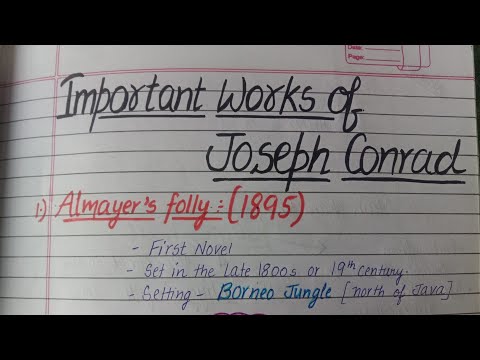 Date:
Page:
Important Works of
Joseph Conrad
1.) Almayer's folly: (1895)
- First Novel
- Set in the late 1800s or 19th century.
- Setting - Borneo Jungle [north of Java]